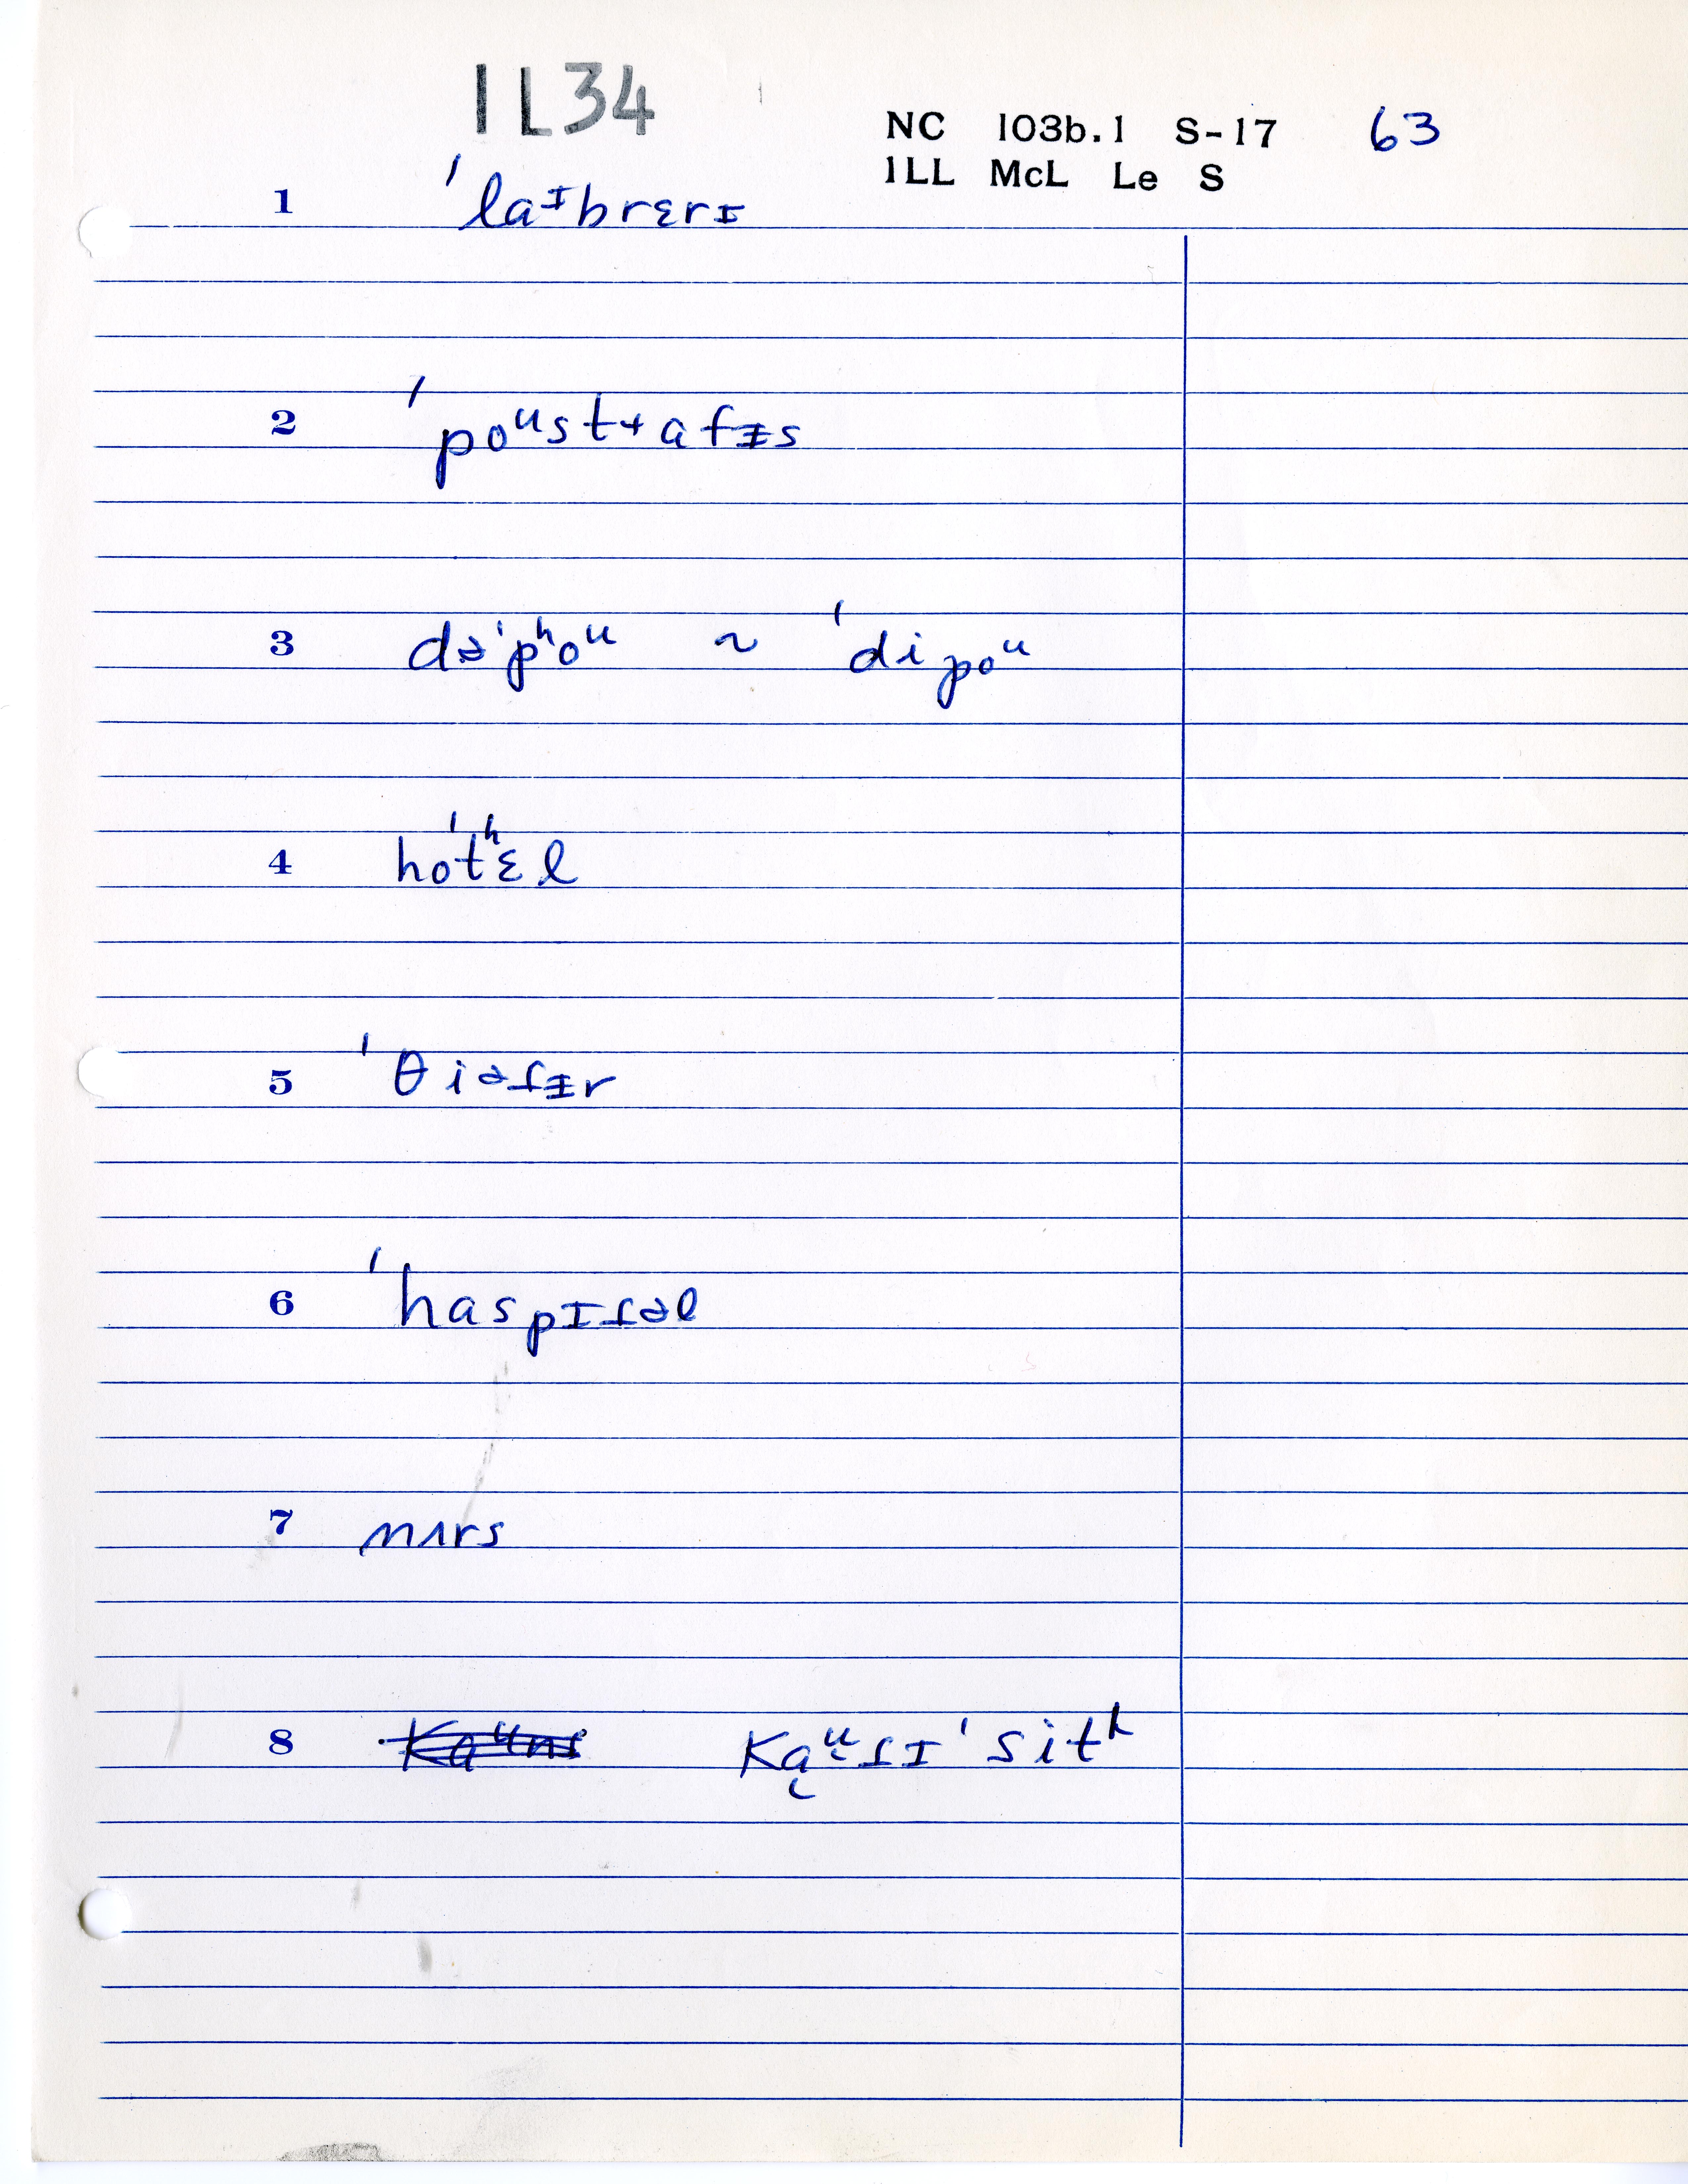 IL34
NC 103b.1 S-17 63
ILL McL Le S
1 ˈlaᶦbrɛrɪ
2 ˈpoᵘst+afɪ̵s
3 dəˈpʰoᵘ ~ ˈdipoᵘ
4 hoˈtʰɛl
5 ˈθiəɾɪ̵r
6 ˈhaspɪɾəl
7 nʌrs
8 Ka̜ᵘɾɪˈsitʰ